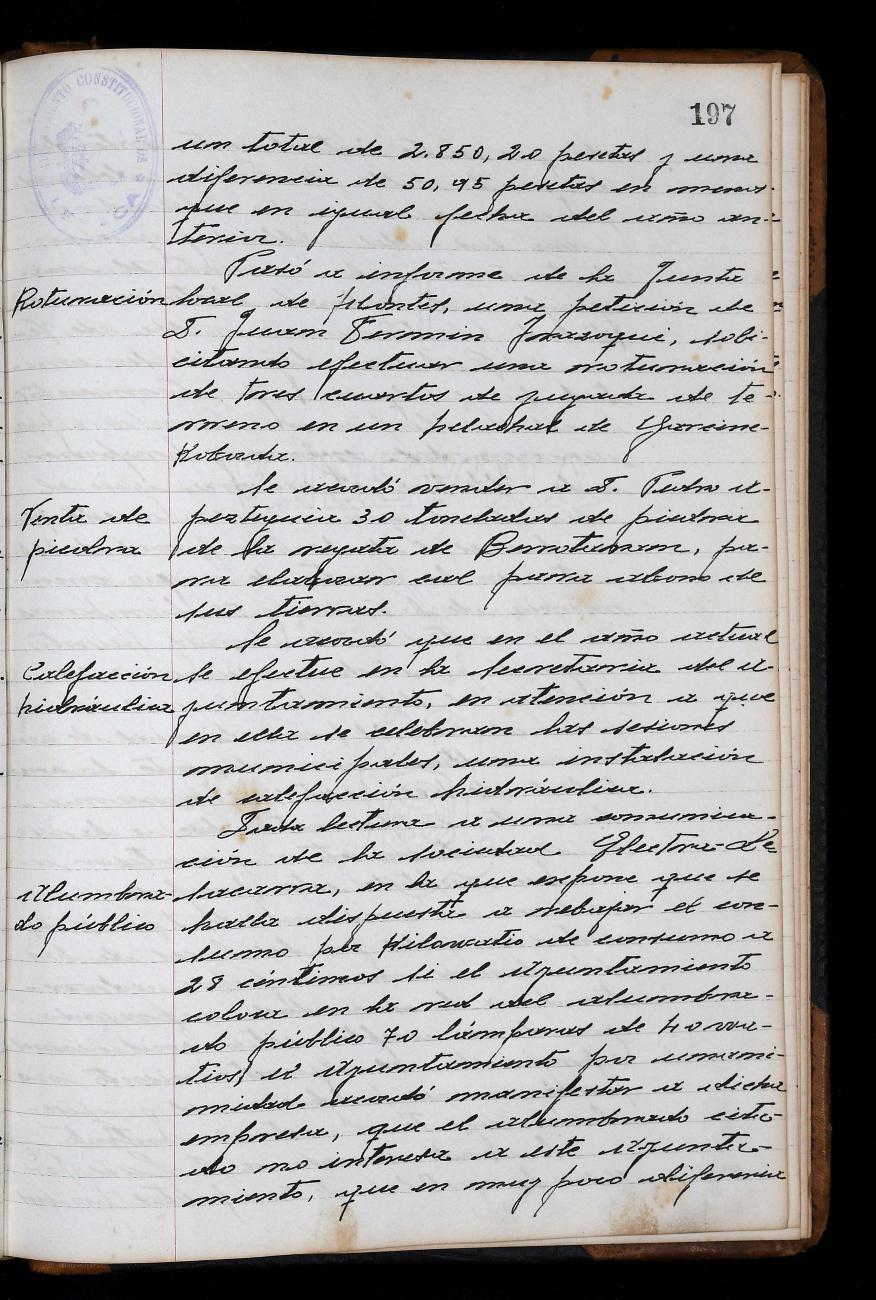 197
un total de 2.850,20 pesetas y una
diferencia de 50,95 pesetas en menos
que en igual fecha del año an-
terior.
Pasó a informe de la Junta
Roturación
local de Montes, una petición de
D. Juan Fermin Irazoqui, soli-
citando efectuar una roturación
de tres cuartos de yugada de te-
rreno en un helechal de
Se acordó vender a D. Pedro A-
Venta de
pezteguia 30 toneladas de piedra
piedra
de la regata de pa-
ra elaborar cal para abono de
sus tierras.
Se acordó que en el año actual
Calefacción
se efectue en la Secretaria del A-
hidráulica
yuntamiento, en atención a que
en ella se celebran las sesiones
municipales, una instalación
de calefacción hidráulica.
Dada lectura a una comunica-
ción de la sociedad Electra-
Alumbra-
en la que expone que se
do público
halla dispuesta a rebajar el con-
sumo por Kilowatio de consumo a
28 céntimos si el Ayuntamiento
coloca en la red del alumbra-
do público 70 lámparas de 40 wa-
tios, el Ayuntamiento por unani-
midad acordó manifestar a dicha
empresa, que el alumbrado cita-
do no interesa a este Ayunta-
miento, que en muy poco diferencia